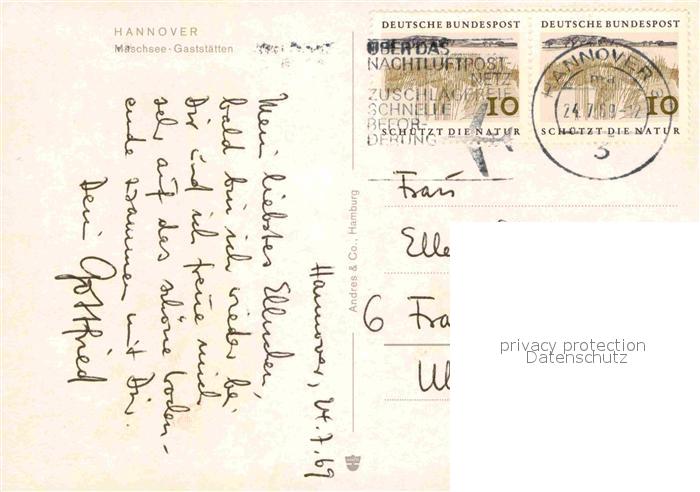 HANNOVER
Maschsee-Gaststätten
DEUTSCHE BUNDESPOST
10
SCHÜTZT DIE NATUR
DEUTSCHE BUNDESPOST
10
SCHÜTZT DIE NATUR
ÜBER DAS
NACHTLUFTPOST-
NETZ
ZUSCHLAGFREIE
SCHNELLE
BEFÖR-
DERUNG
HANNOVER
24.7.69-12
3
Hannover, 24.7.69
Mein liebstes Ellinden,
bald bin ich wieder bei
Dir und ich freue mich
sehr auf das schöne Wochen-
ende zusammen mit Dir.
Dein Gottfried
Andres & Co., Hamburg
Frau
Elle
6 Fra
privacy protection
Datenschutz